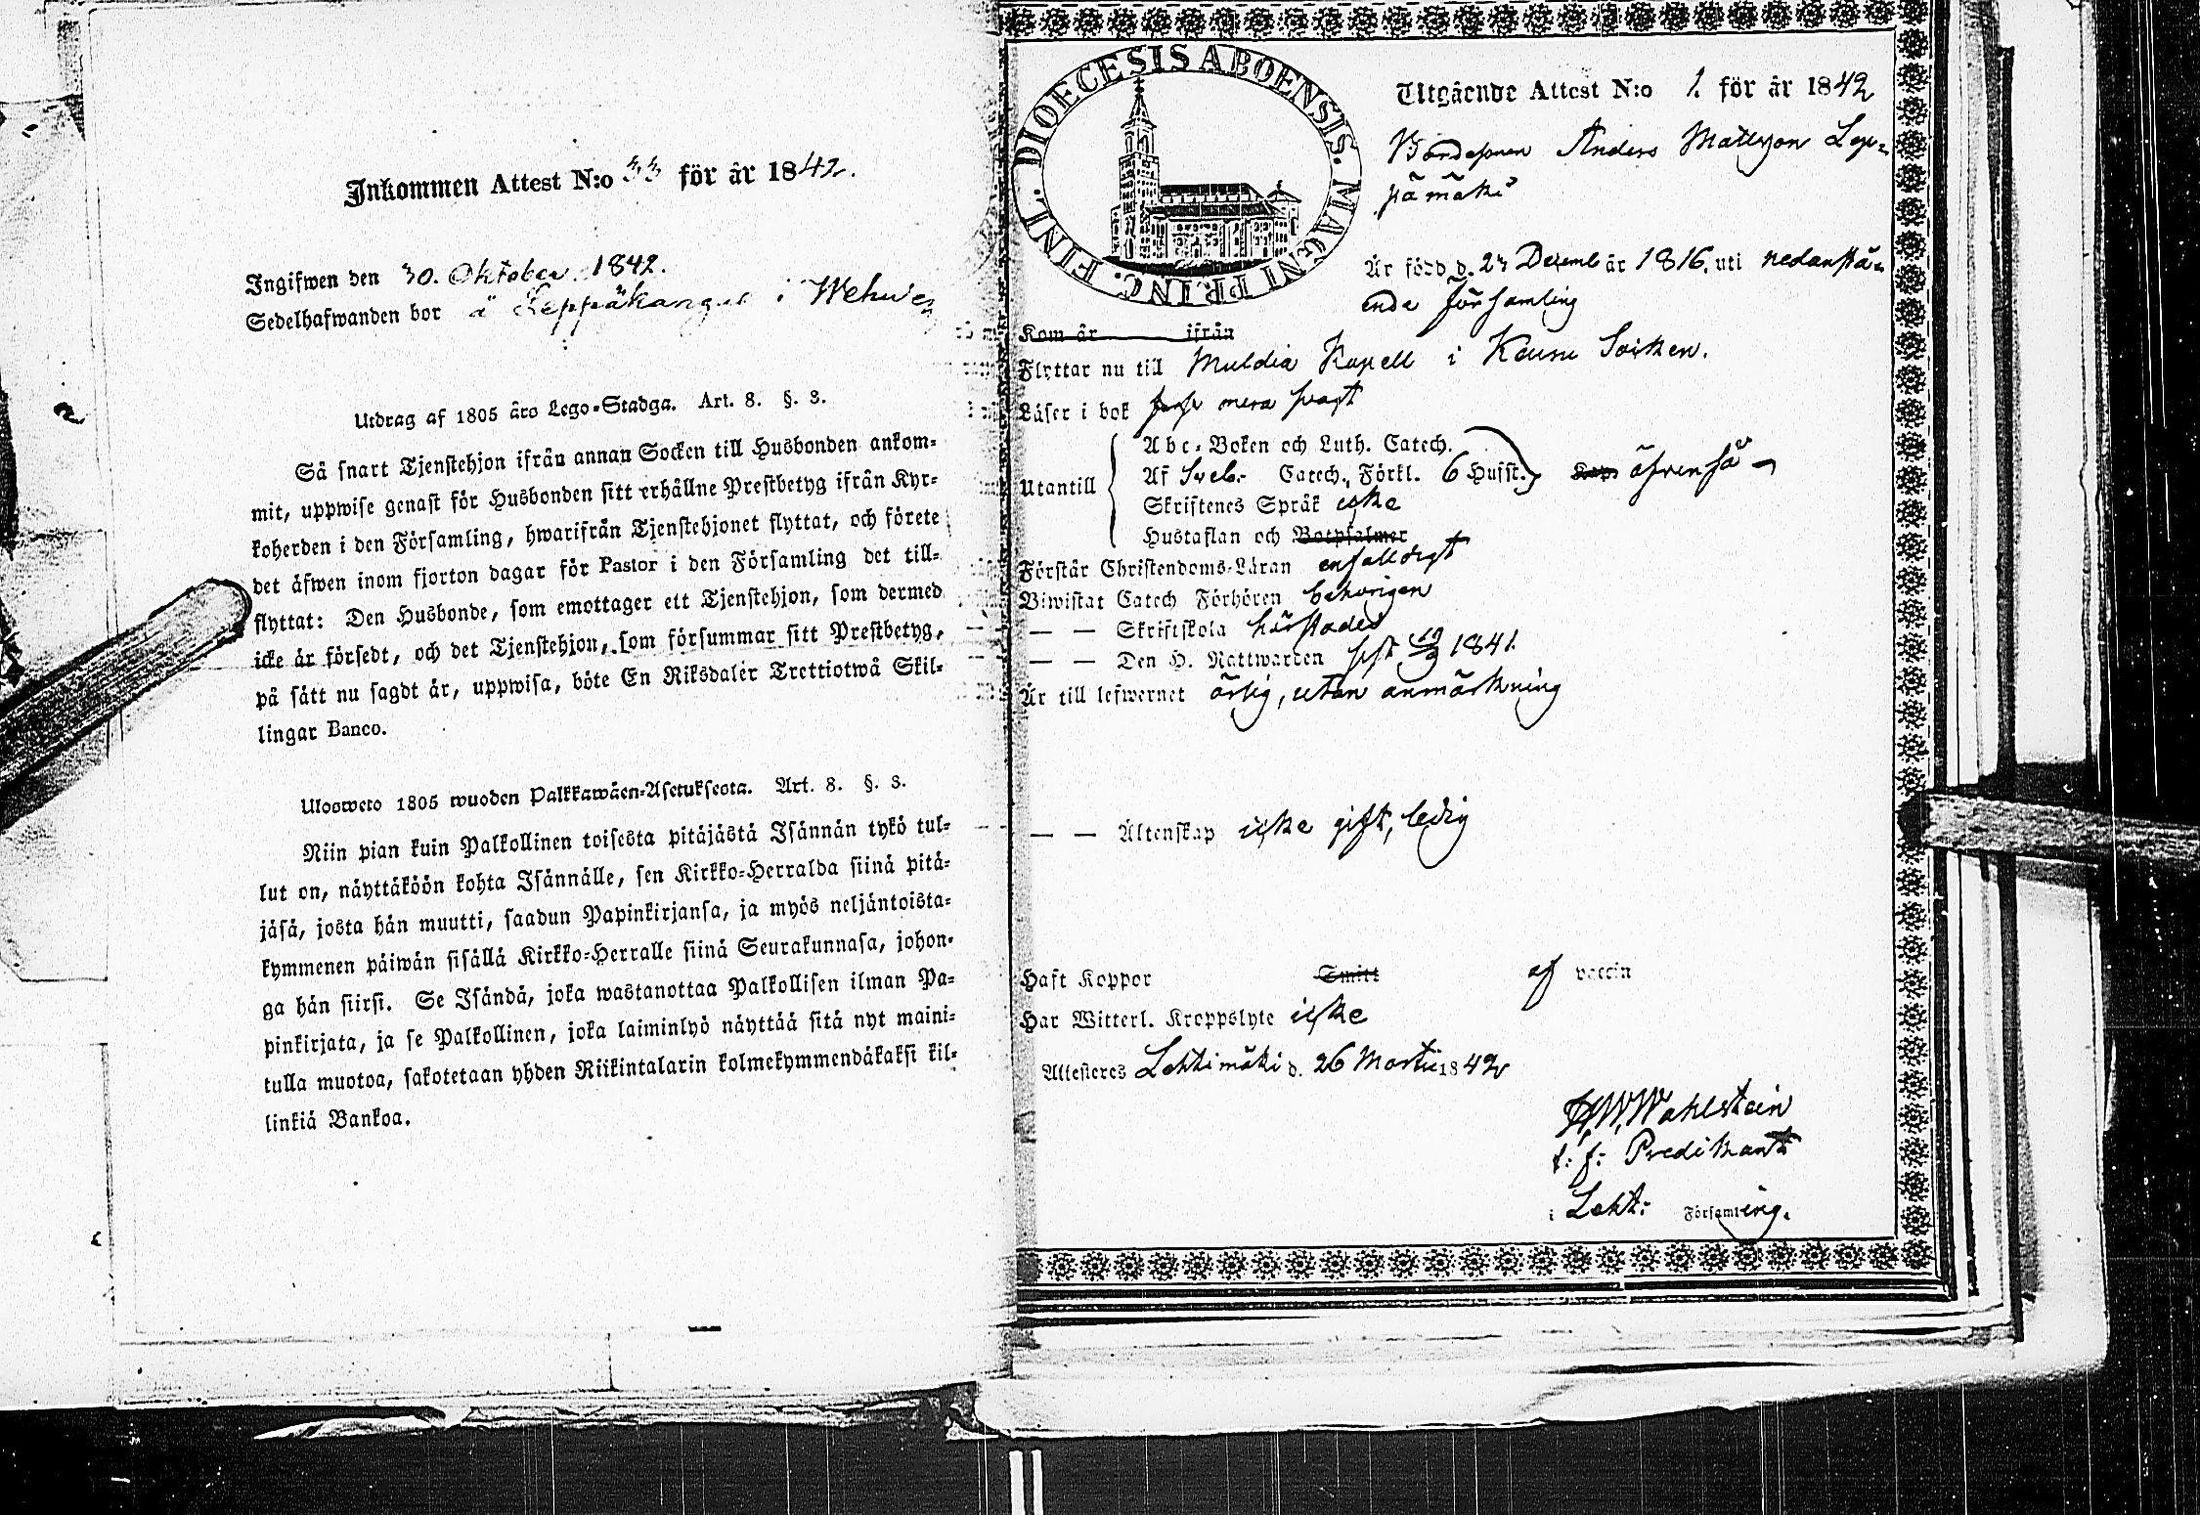 Inkommen Attest N:o 33 för år 1842.
Ingifwen den 30. Oktober 1842.
Sedelhafwanden bor å Leppäkangas i Wehwe
Utdrag af 1805 års Lego-Stadga. Art. 8. §. 3.
Så snart Tjenstehjon ifrån annan Socken till Husbonden ankom-
mit, uppwise genast för Husbonden sitt erhållne Prestbetyg ifrån Kyr-
koherden i den Församling, hwarifrån Tjenstehjonet flyttat, och förete
det äfwen inom fjorton dagar för Pastor i den Församling det till-
flyttat: Den Husbonde, som emottager ett Tjenstehjon, som dermed
icke är försedt, och det Tjenstehjon, som försummar sitt Prestbetyg,
på sätt nu sagdt är, uppwisa, böte En Riksdaler Trettiotwå Skil-
lingar Banco.
Ulosweto 1805 wuoden Palkkawäen-Asetuksesta. Art. 8. §. 3.
Niin pian kuin Palkollinen toisesta pitäjästä Isännän tykö tul-
lut on, näyttäköön kohta Isännälle, sen Kirkko-Herralda siinä pitä-
jäsä, josta hän muutti, saadun Papinkirjansa, ja myös neljäntoista-
kymmenen päiwän sisällä Kirkko-Herralle siinä Seurakunnasa, johon-
ga hän siirsi. Se Isändä, joka wastanottaa Palkollisen ilman Pa-
pinkirjata, ja se Palkollinen, joka laiminlyö näyttää sitä nyt maini-
tulla muotoa, sakotetaan yhden Riikintalarin kolmekymmendäkaksi kil-
linkiä Bankoa.
FINL. DIOECESIS ABOENSIS. MAGNI PRINC.
Utgående Attest N:o 1. för år 1842
Bondesonen Anders Mattsson Lep-
pämäki
Är född d. 23 Decemb år 1816, uti nedanstå-
ende församling
Kom år ifrån
Flyttar nu till Muldia Kapell i Keuru Socken.
Läser i bok mera swagt
Utantill
Abc-Boken och Luth. Catech.
Af Sveb. Catech., Förkl. 6 Hufst. äfvenså
Skriftenes Språk icke
Hustaflan och Botpsalmer
Förstår Christendoms-Läran enfaldigt
Biwistat Catech Förhören behörigen
— — Skriftskola härstädes
— — Den H. Nattwarden sist 19/9 1841.
Är till lefwernet ärlig, utan anmärkning
— — Äktenskap icke gift, ledig
Haft Koppor Smitt af vaccin
Har Witterl. Kroppslyte icke
Attesteres Lehtimäki d. 26 Martii 1842
H. W. Wahlstein
t: f: Predikant
i Leht: Församling.